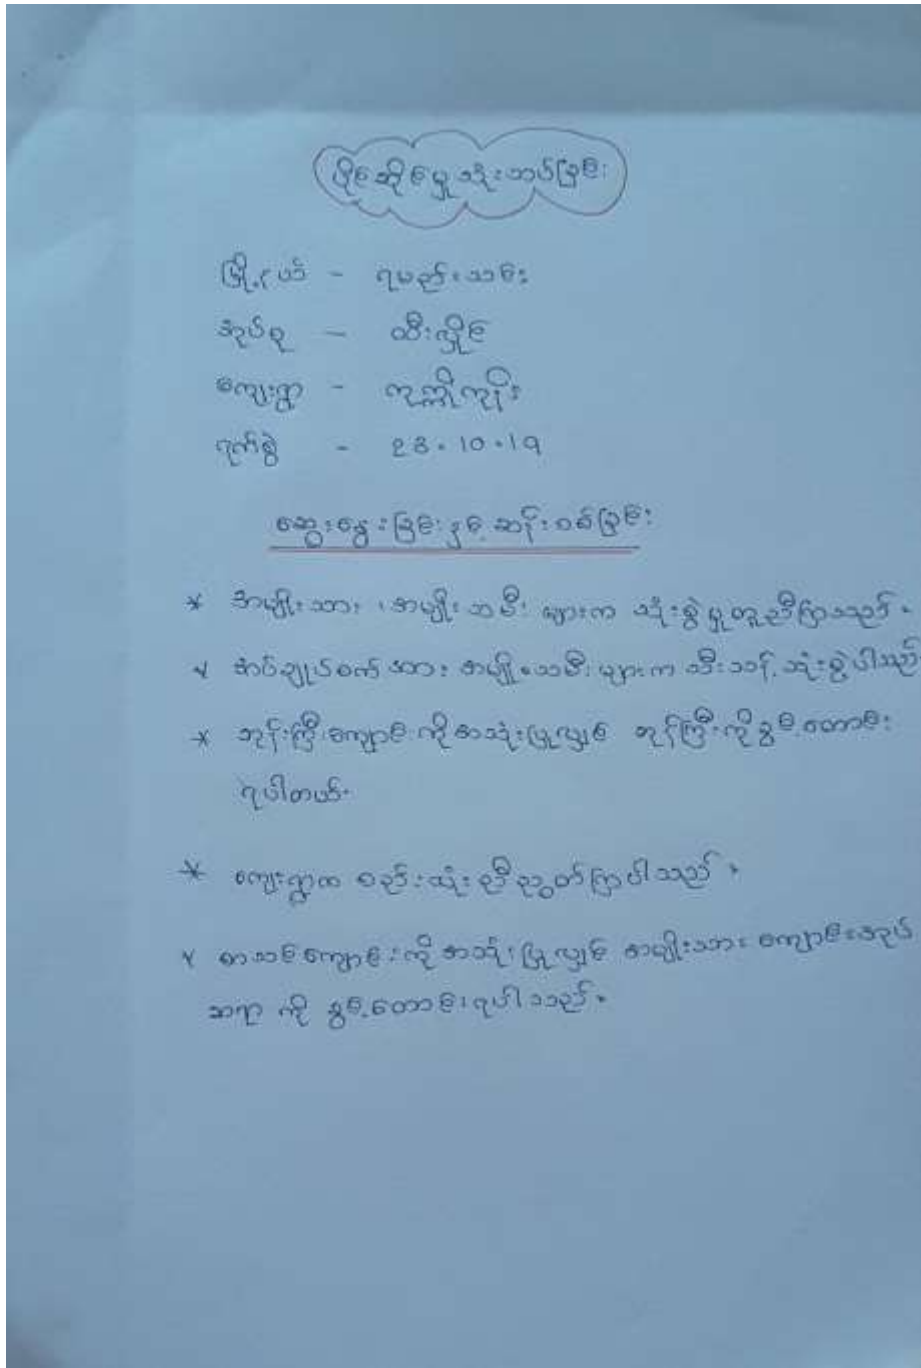 ပိုင်ဆိုင်မှုသုံးသပ်ခြင်း
မြို့နယ် - ရမည်းသင်း
အုပ်စု - ထီးလှိုင်
ကျေးရွာ - ကုက္ကိုကျိုး
ရက်စွဲ - 23.10.19
ဆွေးနွေးခြင်းနှင့်ဆန်းစစ်ခြင်း
* အမျိုးသား ၊ အမျိုးသမီး များက သုံးစွဲမှုတူညီကြသည်။
* အပ်ချုပ်စက်အား အမျိုးသမီးများက သီးသန့်သုံးစွဲပါသည်
* ဘုန်းကြီးကျောင်းကိုအသုံးပြုလျှင် ဘုန်းကြီးကိုခွင့်တောင်း
ရပါတယ်။
* ကျေးရွာက စည်းရုံးညီညွတ်ကြပါသည်။
* စာသင်ကျောင်းကိုအသုံးပြုလျှင် အမျိုးသား ကျောင်းအုပ်
ဆရာ ကို ခွင့်တောင်းရပါသည်။